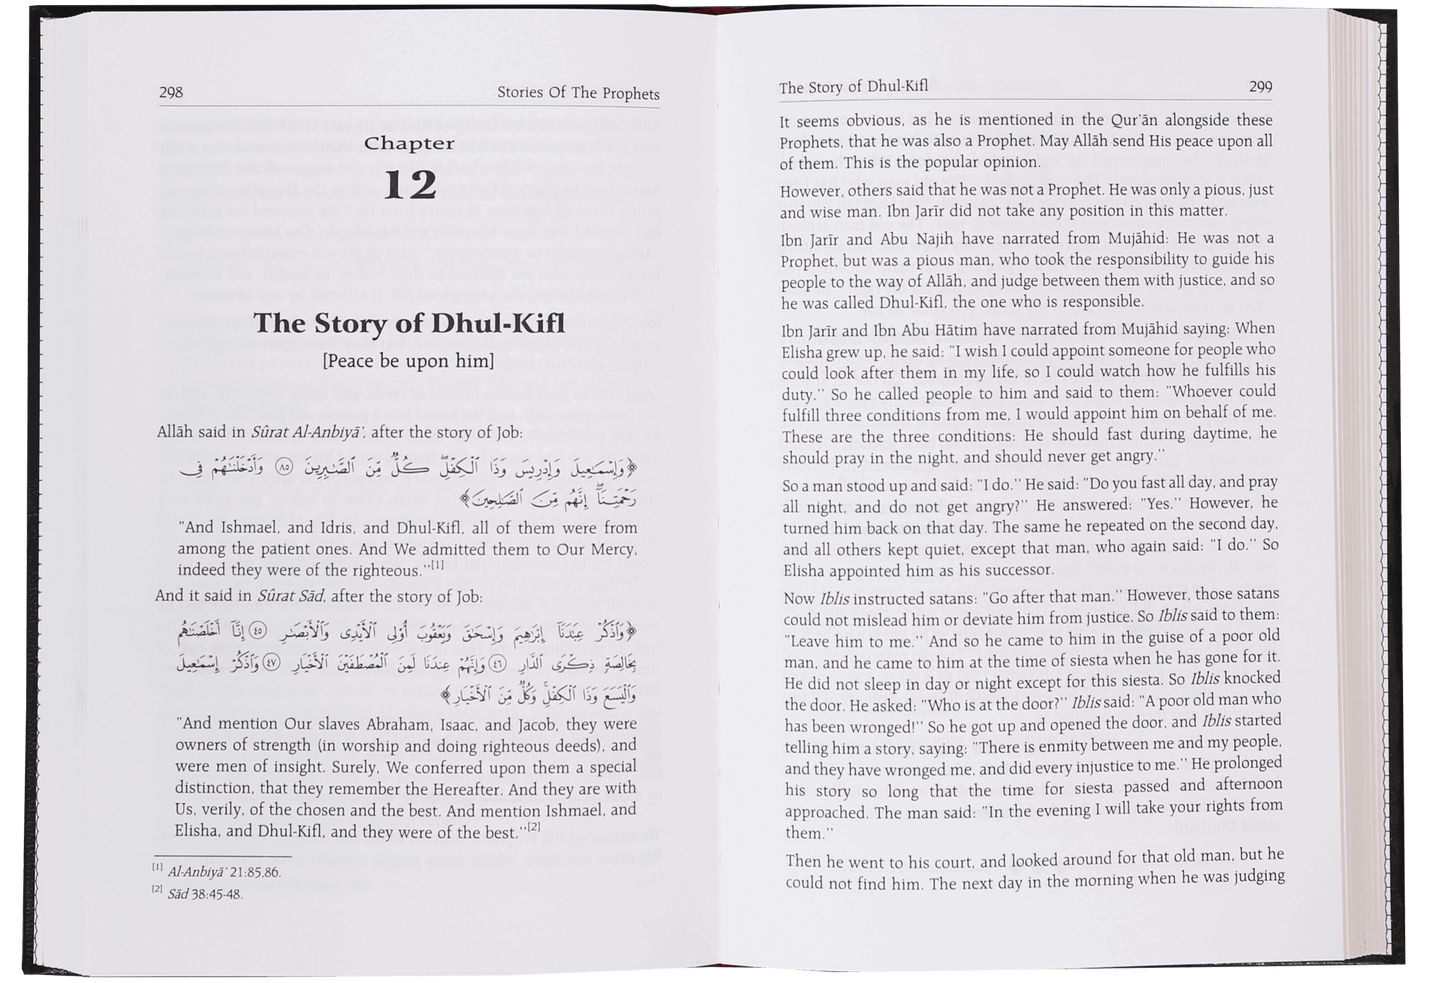 298 Stories Of The Prophets
Chapter
12
The Story of Dhul-Kifl
[Peace be upon him]
Allāh said in Sûrat Al-Anbiyā', after the story of Job:
﴿وَإِسْمَـٰعِيلَ وَإِدْرِيسَ وَذَا ٱلْكِفْلِ ۖ كُلٌّ مِّنَ ٱلصَّـٰبِرِينَ ۝٨٥ وَأَدْخَلْنَـٰهُمْ فِى
رَحْمَتِنَآ ۖ إِنَّهُم مِّنَ ٱلصَّـٰلِحِينَ﴾
"And Ishmael, and Idris, and Dhul-Kifl, all of them were from
among the patient ones. And We admitted them to Our Mercy,
indeed they were of the righteous."[1]
And it said in Sûrat Sād, after the story of Job:
﴿وَٱذْكُرْ عِبَـٰدَنَآ إِبْرَٰهِيمَ وَإِسْحَـٰقَ وَيَعْقُوبَ أُو۟لِى ٱلْأَيْدِى وَٱلْأَبْصَـٰرِ ۝٤٥ إِنَّآ أَخْلَصْنَـٰهُم
بِخَالِصَةٍ ذِكْرَى ٱلدَّارِ ۝٤٦ وَإِنَّهُمْ عِندَنَا لَمِنَ ٱلْمُصْطَفَيْنَ ٱلْأَخْيَارِ ۝٤٧ وَٱذْكُرْ إِسْمَـٰعِيلَ
وَٱلْيَسَعَ وَذَا ٱلْكِفْلِ ۖ وَكُلٌّ مِّنَ ٱلْأَخْيَارِ﴾
"And mention Our slaves Abraham, Isaac, and Jacob, they were
owners of strength (in worship and doing righteous deeds), and
were men of insight. Surely, We conferred upon them a special
distinction, that they remember the Hereafter. And they are with
Us, verily, of the chosen and the best. And mention Ishmael, and
Elisha, and Dhul-Kifl, and they were of the best."[2]
[1] Al-Anbiyā' 21:85,86.
[2] Sād 38:45-48.
The Story of Dhul-Kifl 299
It seems obvious, as he is mentioned in the Qur'ān alongside these
Prophets, that he was also a Prophet. May Allāh send His peace upon all
of them. This is the popular opinion.
However, others said that he was not a Prophet. He was only a pious, just
and wise man. Ibn Jarīr did not take any position in this matter.
Ibn Jarīr and Abu Najih have narrated from Mujāhid: He was not a
Prophet, but was a pious man, who took the responsibility to guide his
people to the way of Allāh, and judge between them with justice, and so
he was called Dhul-Kifl, the one who is responsible.
Ibn Jarīr and Ibn Abu Hātim have narrated from Mujāhid saying: When
Elisha grew up, he said: "I wish I could appoint someone for people who
could look after them in my life, so I could watch how he fulfills his
duty." So he called people to him and said to them: "Whoever could
fulfill three conditions from me, I would appoint him on behalf of me.
These are the three conditions: He should fast during daytime, he
should pray in the night, and should never get angry."
So a man stood up and said: "I do." He said: "Do you fast all day, and pray
all night, and do not get angry?" He answered: "Yes." However, he
turned him back on that day. The same he repeated on the second day,
and all others kept quiet, except that man, who again said: "I do." So
Elisha appointed him as his successor.
Now Iblis instructed satans: "Go after that man." However, those satans
could not mislead him or deviate him from justice. So Iblis said to them:
"Leave him to me." And so he came to him in the guise of a poor old
man, and he came to him at the time of siesta when he has gone for it.
He did not sleep in day or night except for this siesta. So Iblis knocked
the door. He asked: "Who is at the door?" Iblis said: "A poor old man who
has been wronged!" So he got up and opened the door, and Iblis started
telling him a story, saying: "There is enmity between me and my people,
and they have wronged me, and did every injustice to me." He prolonged
his story so long that the time for siesta passed and afternoon
approached. The man said: "In the evening I will take your rights from
them."
Then he went to his court, and looked around for that old man, but he
could not find him. The next day in the morning when he was judging